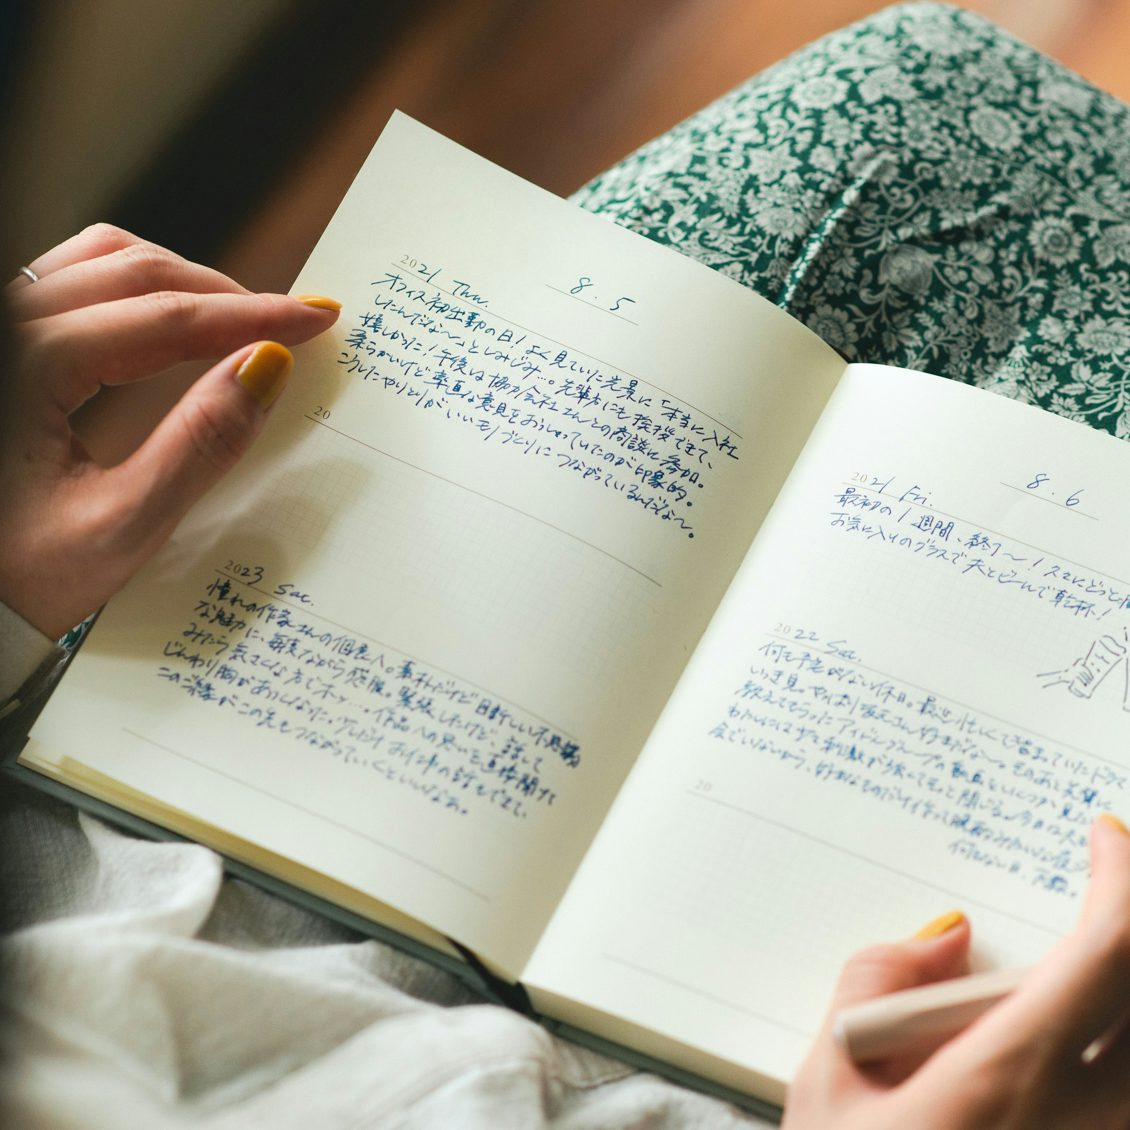 8.5
2021 Thu.
オフィス初出勤の日!よく見ていた光景に「本当に入社
したんだな〜」としみじみ…。先輩方にも挨拶できて、
嬉しかった!午後は協力会社さんとの商談に参加。
柔らかいけど率直な意見をおっしゃっていたのが印象的。
こうしたやりとりがいいモノづくりにつながっているんだな〜。
20
2023 Sat.
憧れの作家さんの個展へ。素朴だけど目新しい不思議
な魅力に、毎度ながら感服。緊張したけど、話して
みたら気さくな方でホッ…。作品への思いを直接聞けて
じんわり胸があつくなった。少しだけお仕事の話もできて、
このご縁がこの先もつながっていくといいなぁ。
8.6
2021 Fri.
最初の1週間、終了〜!スマにどっと
お気に入りのグラスで夫とビールで乾杯!
2022 Sat.
何も予定がない休日。最近忙しくて溜まっていたドラマ
いっき見。やっぱり坂元さん好きだな〜。そのあと先輩に
教えてもらったアイドルグループの動画をいくつか見た
20
何もない日、万歳。